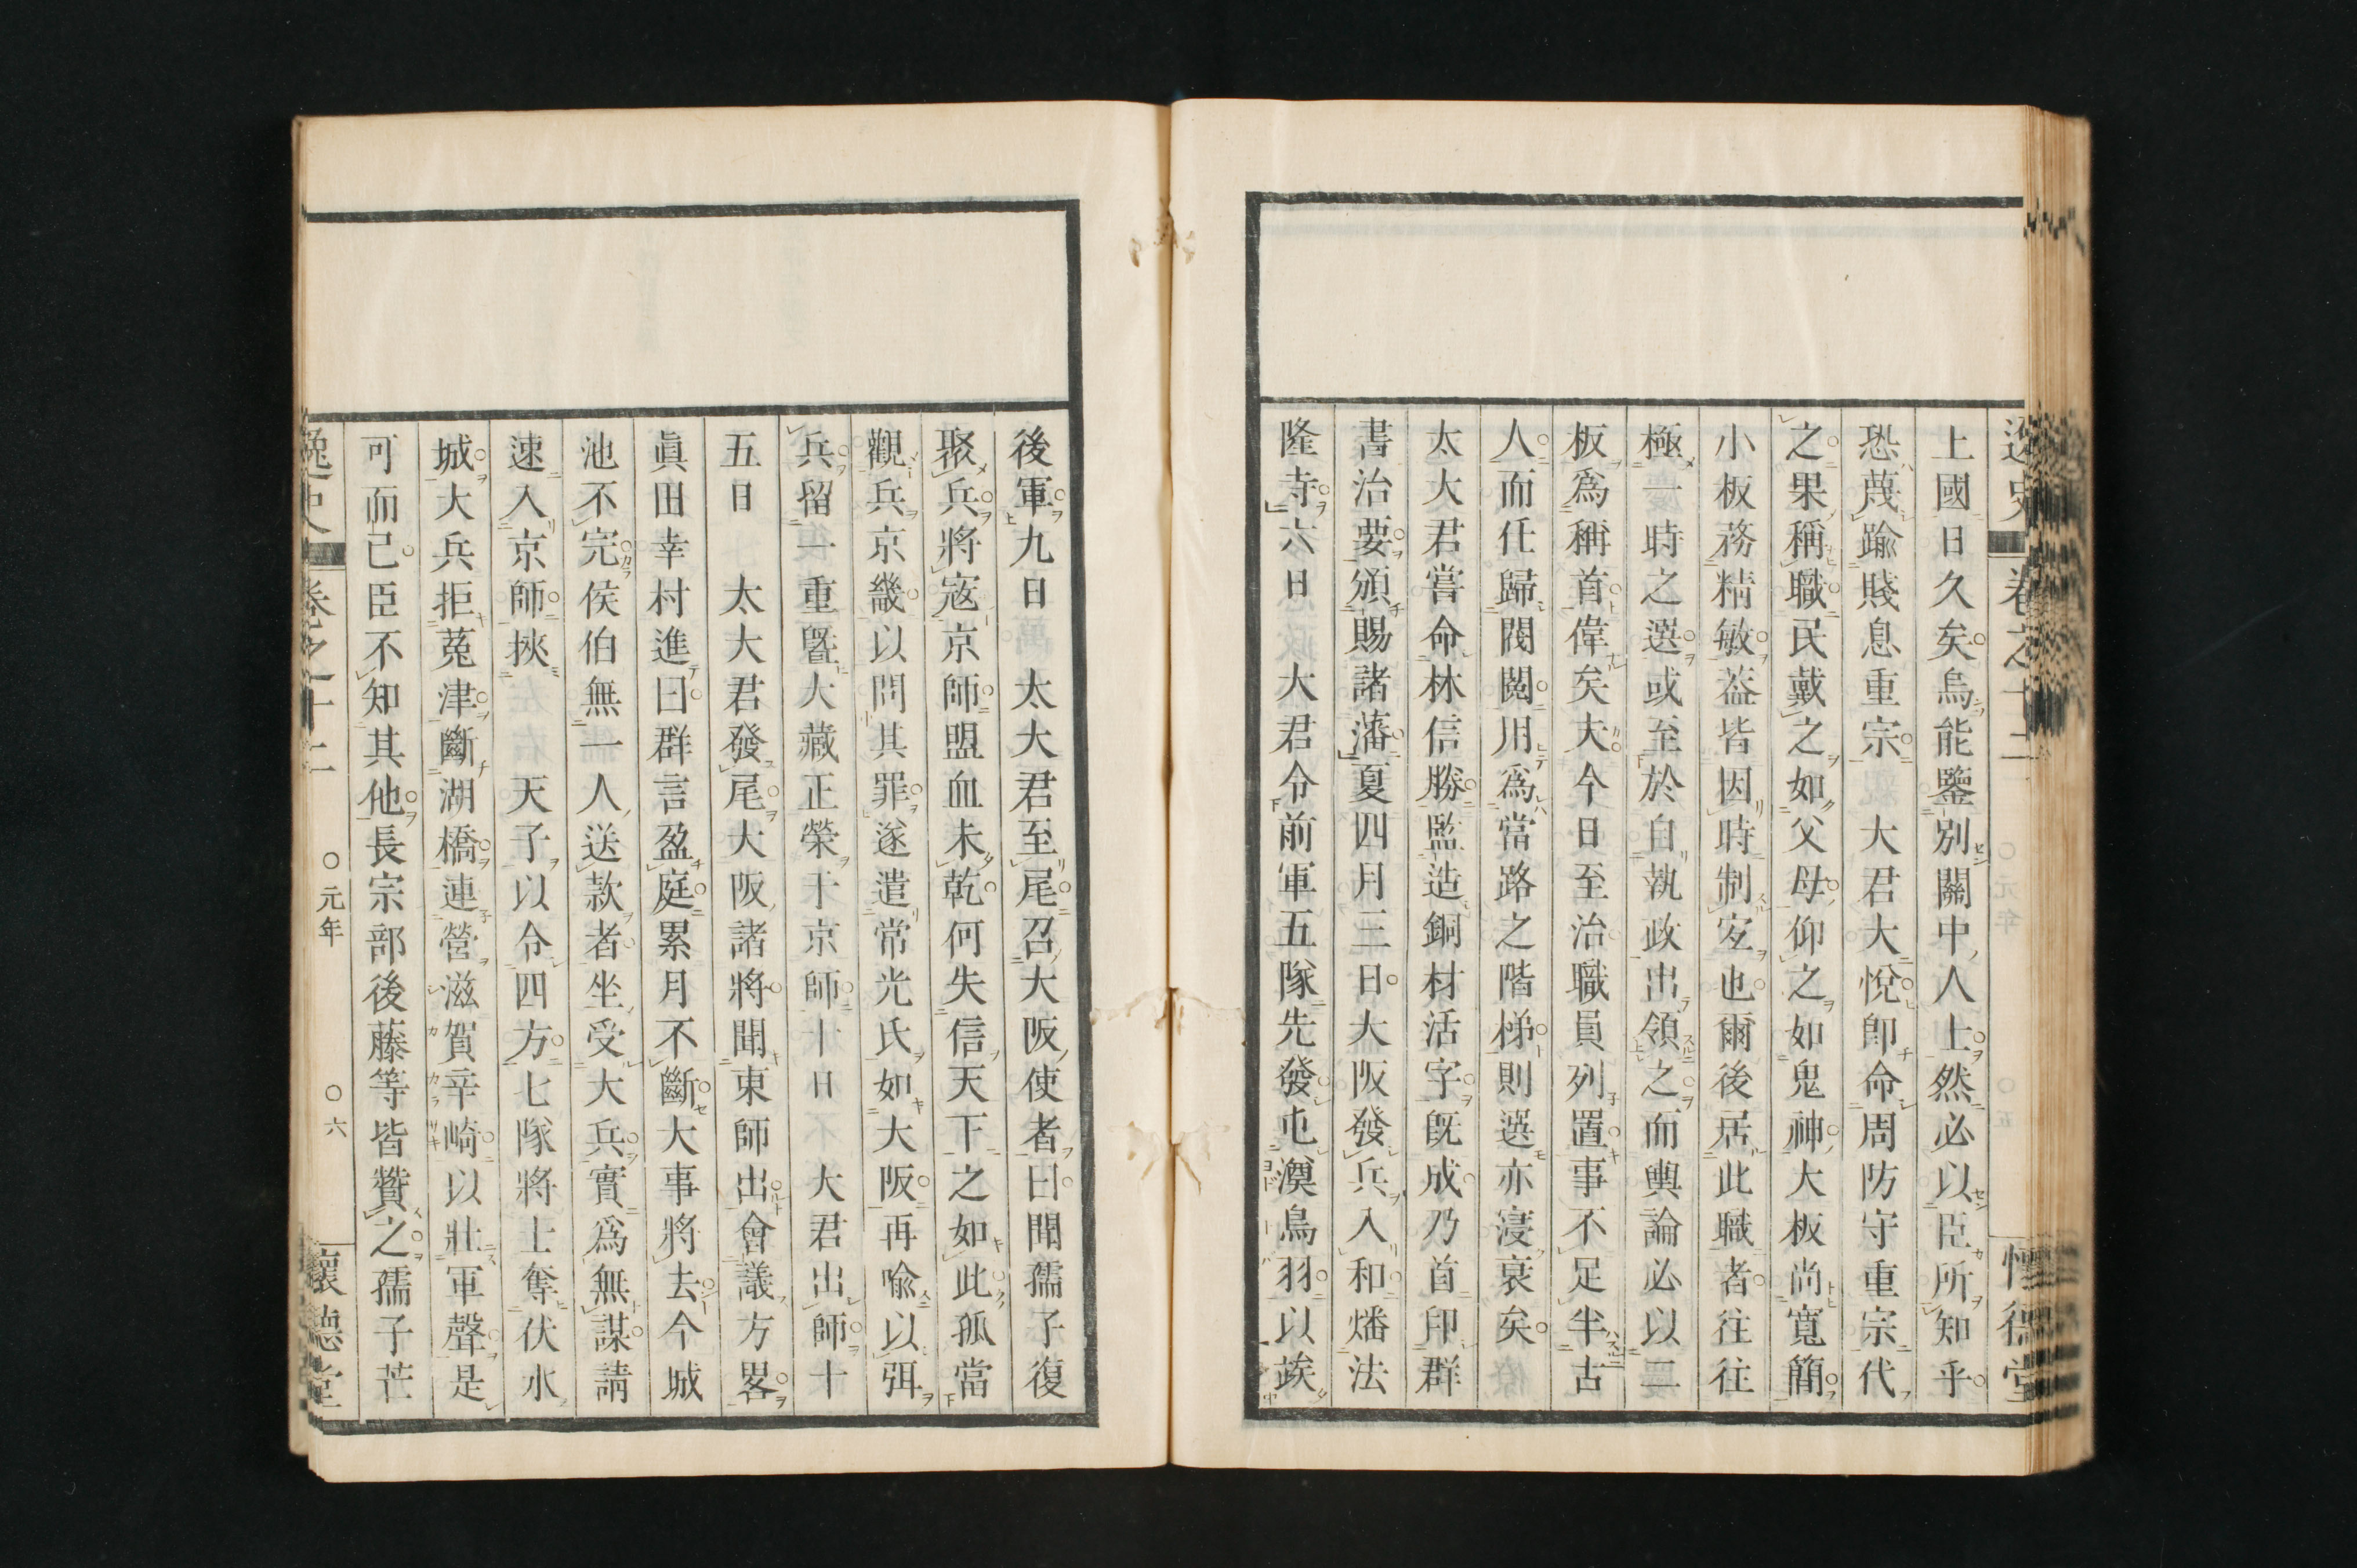 上國日久矣烏能鑒別關中人上然必以臣所知乎
恐蔑踰賤息重宗 大君大悅卽命周防守重宗代
之果稱職民戴之如父母仰之如鬼神大板尚寬簡
小板務精敏葢皆因時制宐也爾後居此職者往往
極一時之選或至於自執政出領之而輿論必以二
板爲稱首偉矣夫今日至治職員列置事不足半古
人而任歸閥閱用爲當路之階梯則選亦寖衰矣
太大君嘗命林信勝監造銅材活字旣成乃首印群
書治要頒賜諸藩夏四月三日大阪發兵入和燔法
隆寺六日 大君令前軍五隊先發屯澱鳥羽以竢
後軍九日 太大君至尾召大阪使者曰聞孺子復
聚兵將寇京師盟血未乾何失信天下之如此孤當
觀兵京畿以問其罪遂遣常光氏如大阪再喩以弭
兵留一重曁大藏正榮于京師十日 大君出師十
五日 太大君發尾大阪諸將聞東師出會議方畧
眞田幸村進曰群言盈庭累月不斷大事將去今城
池不完侯伯無一人送款者坐受大兵實爲無謀請
速入京師挾 天子以令四方七隊將士奪伏水
城大兵拒菟津斷湖橋連營滋賀辛崎以壯軍聲是
可而已臣不知其他長宗部後藤等皆贊之孺子芒
逸史 卷之十二 〇元年 〇六 懷德堂